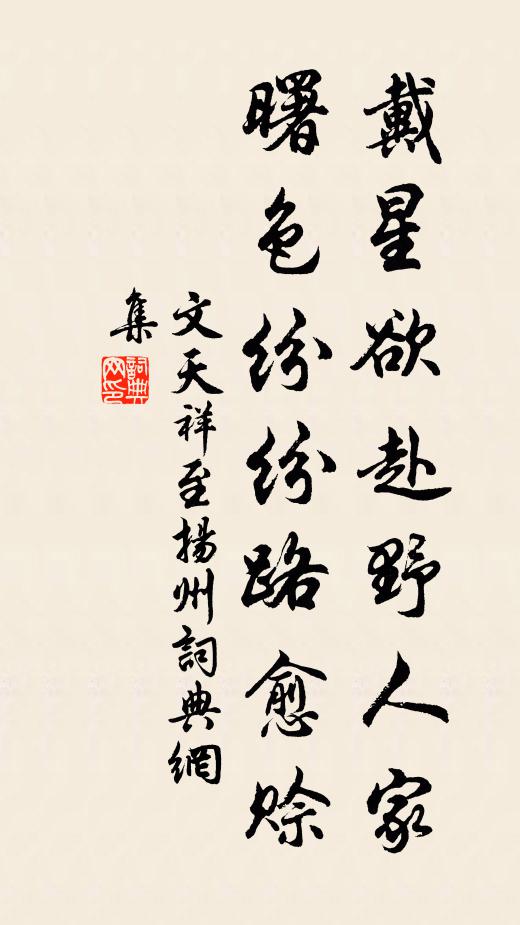 戴星欲赴野人家
曙色紛紛路愈賒
文天祥至揚州詞典網
集
詞典
网印